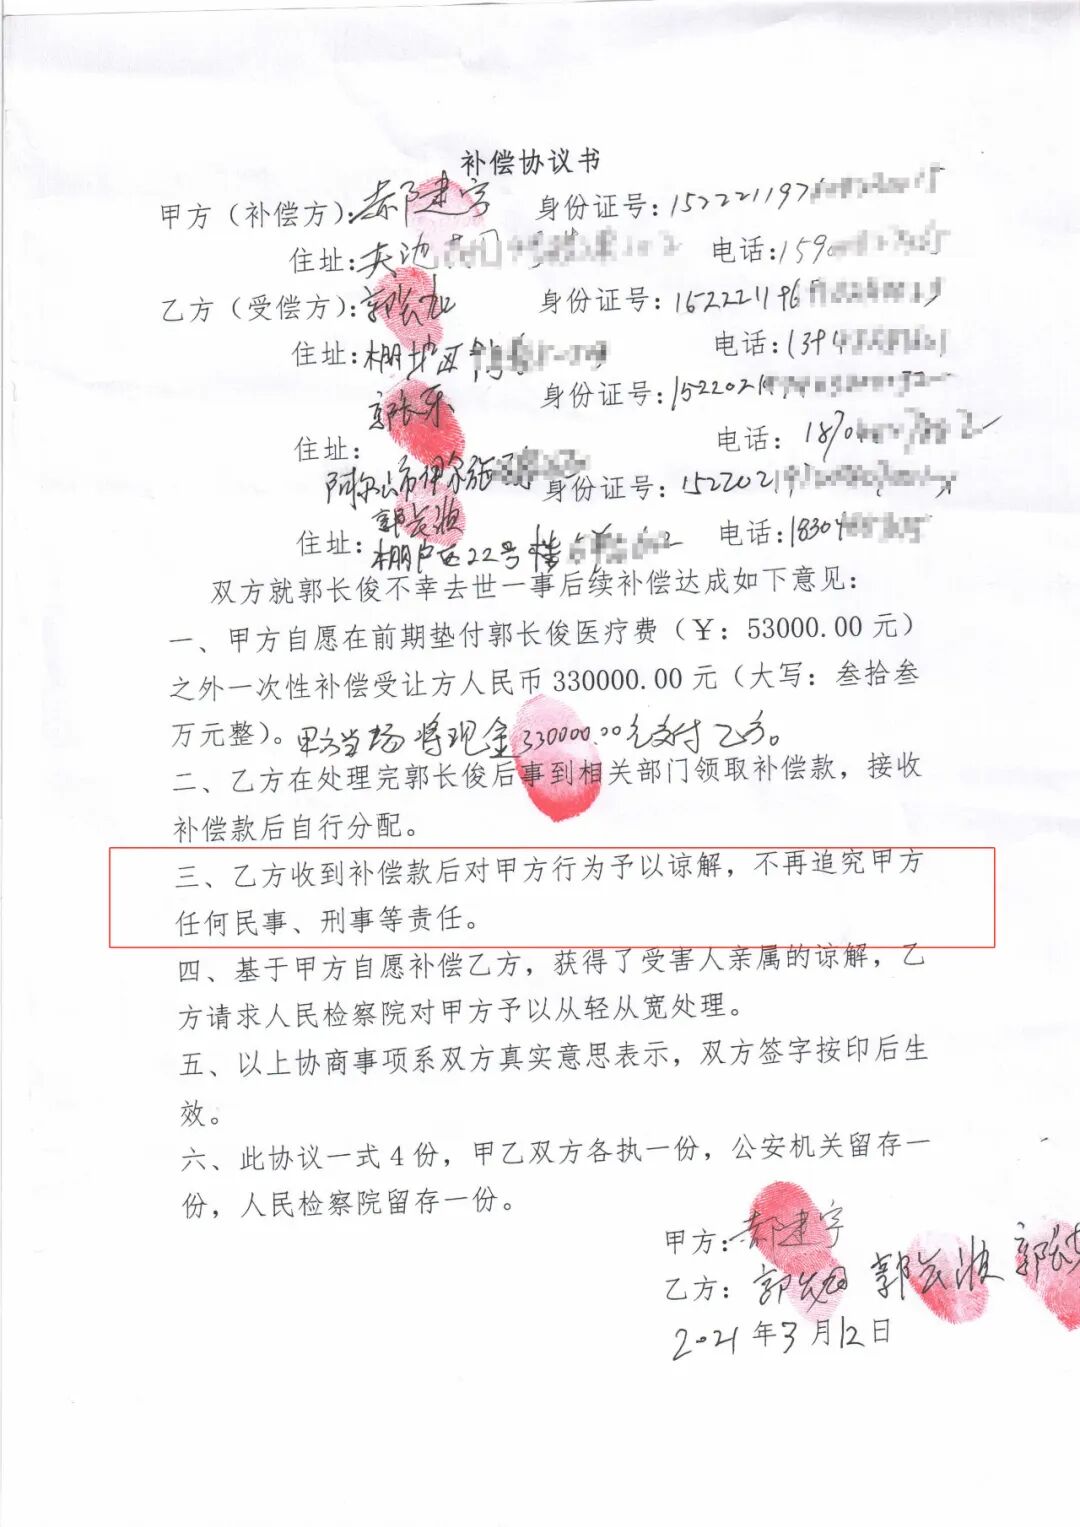 补偿协议书
甲方（补偿方）：郝建宇 身份证号：152221197
住址： 电话：159
乙方（受偿方）： 身份证号：152221196
住址：棚户区 电话：1394
郭长乐 身份证号：1522021
住址： 电话：1870
阿尔山市伊尔施 身份证号：1522021
郭长波
住址：棚户区22号楼 电话：18304
双方就郭长俊不幸去世一事后续补偿达成如下意见：
一、甲方自愿在前期垫付郭长俊医疗费（￥：53000.00 元）
之外一次性补偿受让方人民币 330000.00 元（大写：叁拾叁
万元整）。甲方当场将现金330000.00元支付乙方。
二、乙方在处理完郭长俊后事到相关部门领取补偿款，接收
补偿款后自行分配。
三、乙方收到补偿款后对甲方行为予以谅解，不再追究甲方
任何民事、刑事等责任。
四、基于甲方自愿补偿乙方，获得了受害人亲属的谅解，乙
方请求人民检察院对甲方予以从轻从宽处理。
五、以上协商事项系双方真实意思表示，双方签字按印后生
效。
六、此协议一式 4 份，甲乙双方各执一份，公安机关留存一
份，人民检察院留存一份。
甲方：郝建宇
乙方： 郭长波
2021 年 3 月 12 日